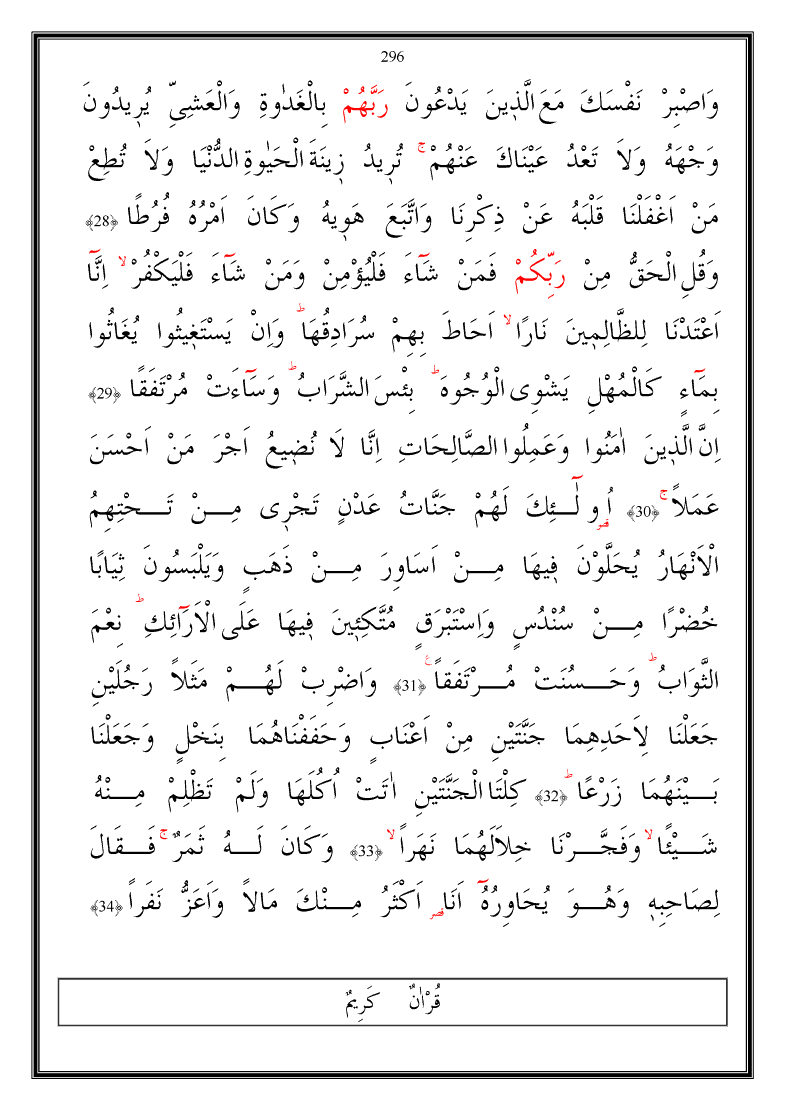 296
وَاصْبِرْ نَفْسَكَ مَعَ الَّذٖينَ يَدْعُونَ رَبَّهُمْ بِالْغَدٰوةِ وَالْعَشِىِّ يُرٖيدُونَ
وَجْهَهُ وَلاَ تَعْدُ عَيْنَاكَ عَنْهُمْ ۚ تُرٖيدُ زٖينَةَ الْحَيٰوةِ الدُّنْيَا وَلاَ تُطِعْ
مَنْ اَغْفَلْنَا قَلْبَهُ عَنْ ذِكْرِنَا وَاتَّبَعَ هَوٖيهُ وَكَانَ اَمْرُهُ فُرُطًا ﴿28﴾
وَقُلِ الْحَقُّ مِنْ رَبِّكُمْ فَمَنْ شَٓاءَ فَلْيُؤْمِنْ وَمَنْ شَٓاءَ فَلْيَكْفُرْ ۙ اِنَّٓا
اَعْتَدْنَا لِلظَّالِمٖينَ نَارًا ۙ اَحَاطَ بِهِمْ سُرَادِقُهَا ؕ وَاِنْ يَسْتَغٖيثُوا يُغَاثُوا
بِمَٓاءٍ كَالْمُهْلِ يَشْوِى الْوُجُوهَ ؕ بِئْسَ الشَّرَابُ ؕ وَسَٓاءَتْ مُرْتَفَقًا ﴿29﴾
اِنَّ الَّذٖينَ اٰمَنُوا وَعَمِلُوا الصَّالِحَاتِ اِنَّا لَا نُضٖيعُ اَجْرَ مَنْ اَحْسَنَ
عَمَلاً ۚ ﴿30﴾ اُو۬لٰٓـئِكَ لَهُمْ جَنَّاتُ عَدْنٍ تَجْرٖى مِـنْ تَـحْتِهِمُ
الْاَنْهَارُ يُحَلَّوْنَ فٖيهَا مِـنْ اَسَاوِرَ مِـنْ ذَهَبٍ وَيَلْبَسُونَ ثِيَابًا
خُضْرًا مِـنْ سُنْدُسٍ وَاِسْتَبْرَقٍ مُتَّكِـٖٔينَ فٖيهَا عَلَى الْاَرَٓائِكِ ؕ نِعْمَ
الثَّوَابُ ؕ وَحَـسُنَتْ مُـرْتَفَقاً ࣖ ﴿31﴾ وَاضْرِبْ لَهُـمْ مَثَلاً رَجُلَيْنِ
جَعَلْنَا لِاَحَدِهِمَا جَنَّتَيْنِ مِنْ اَعْنَابٍ وَحَفَفْنَاهُمَا بِنَخْلٍ وَجَعَلْنَا
بَـيْنَهُمَا زَرْعًا ؕ ﴿32﴾ كِلْتَا الْجَنَّتَيْنِ اٰتَتْ اُكُلَهَا وَلَمْ تَظْلِمْ مِـنْهُ
شَـيْئًا ۙ وَفَجَّـرْنَا خِلاَلَهُمَا نَهَراً ۙ ﴿33﴾ وَكَانَ لَـهُ ثَمَرٌ ۚ فَـقَالَ
لِصَاحِبِهٖ وَهُـوَ يُحَاوِرُهُٓ اَنَا۬ اَكْثَرُ مِـنْكَ مَالاً وَاَعَزُّ نَفَراً ﴿34﴾
قُرْاٰنٌ كَرٖيمٌ